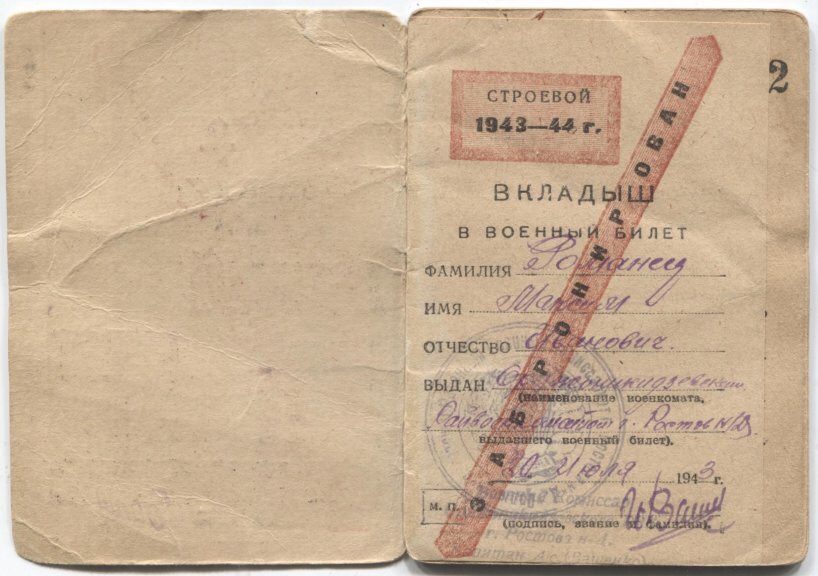 2
СТРОЕВОЙ
1943—44 г.
ЗАБРОНИРОВАН
ВКЛАДЫШ
В ВОЕННЫЙ БИЛЕТ
ФАМИЛИЯ Романец
ИМЯ Максим
ОТЧЕСТВО Иванович.
ВЫДАН Орджоникидзевским
(наименование военкомата,
Райвоенкоматом г. Ростов н/Д
выдавшего военный билет).
20 Июля 1943 г.
М. П.
(подпись, звание и фамилия).
г. Ростова н-Д.